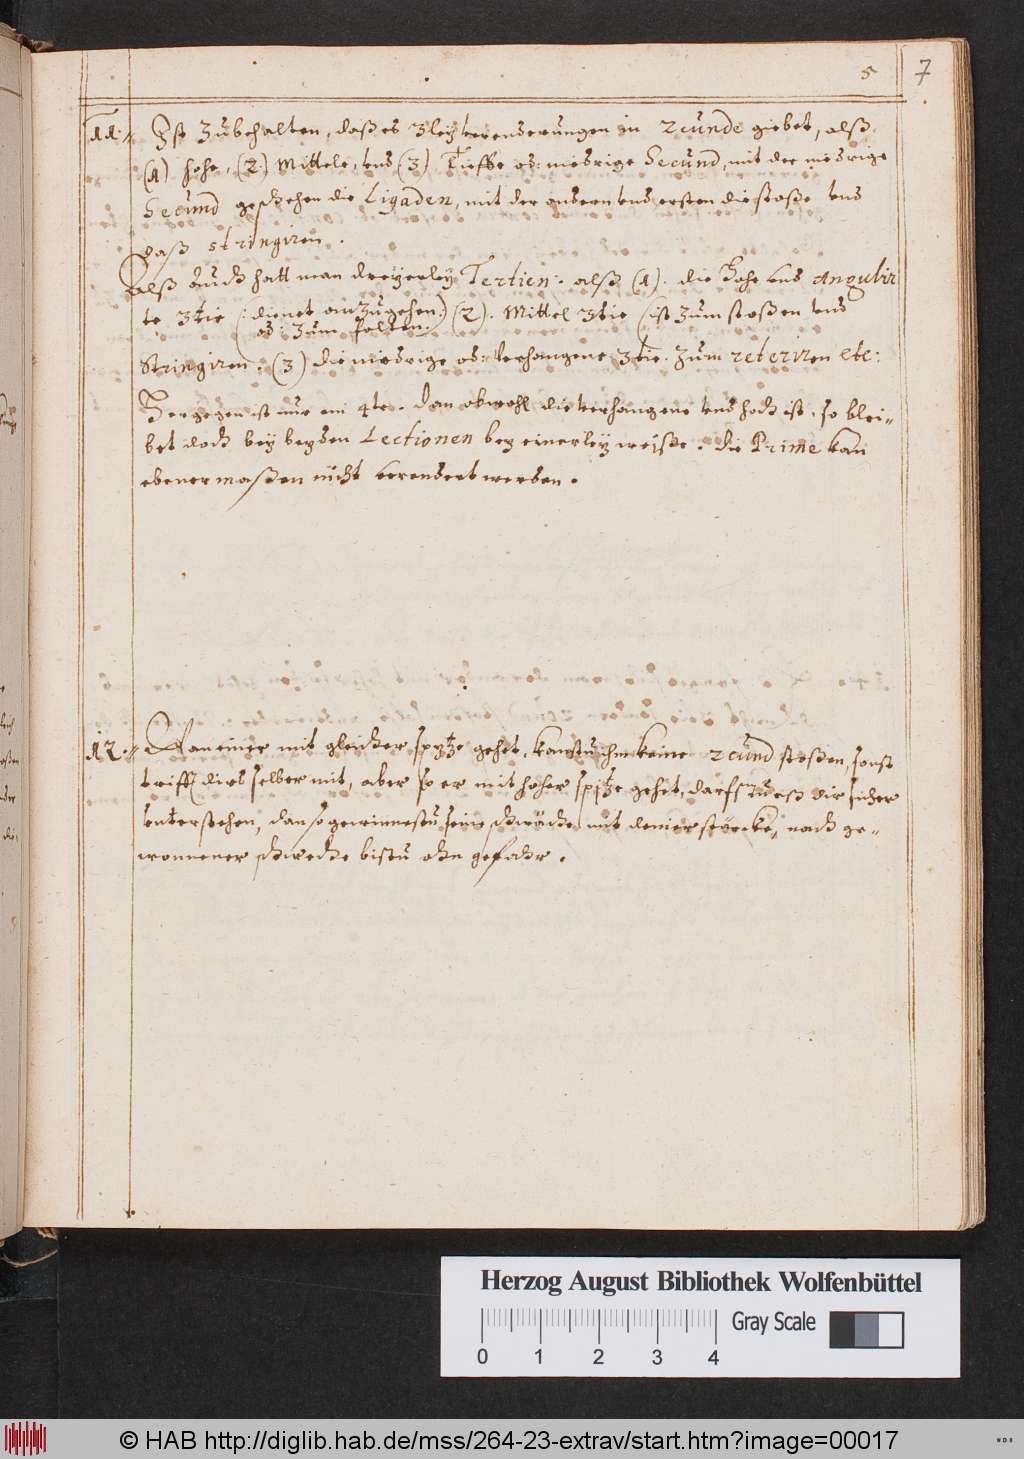 5 7
11. Ist zubehalten, daß es 3leÿ verenderungen in 2cunde giebet, alß
(1) hohe, (2) Mittele, und (3) Tieffe od: niedrige Secund, mit der niedrige
Secund geschehen die Ligaden, mit der andern und ersten die stoße und
daß stringiren.
Alß auch hatt man dreÿerleÿ Tertien: alß (1). die Hohe und angulir
te 3tie (: dienet anzugehen:) (2). Mittel 3tie (ist zum stoßen und
od: zum
Stringiren: (3) die niedrige od: verhangene 3tie. zum reteriren etc:
Hergegen ist nur ein 4te. Dan obwohl die verhangene und hoch ist, so blei=
bet doch beÿ beÿden Lectionen beÿ einerleÿ weiße. die Prime kan
ebener maßen nicht verendert werden.
12. Wan einer mit gleicher spytze gehet, kanstu ihm keine 2cund stoßen, sonst
trifft dirs selber mit, aber so er mit hoher spitze gehet, darfstu eß dir sicher
unterstehen, dan so gewinnestu seine schwäche mit deiner störcke, nach ge=
wonnener schweche bistu ohn gefahr.
Herzog August Bibliothek Wolfenbüttel
Gray Scale
0 1 2 3 4
© HAB http://diglib.hab.de/mss/264-23-extrav/start.htm?image=00017